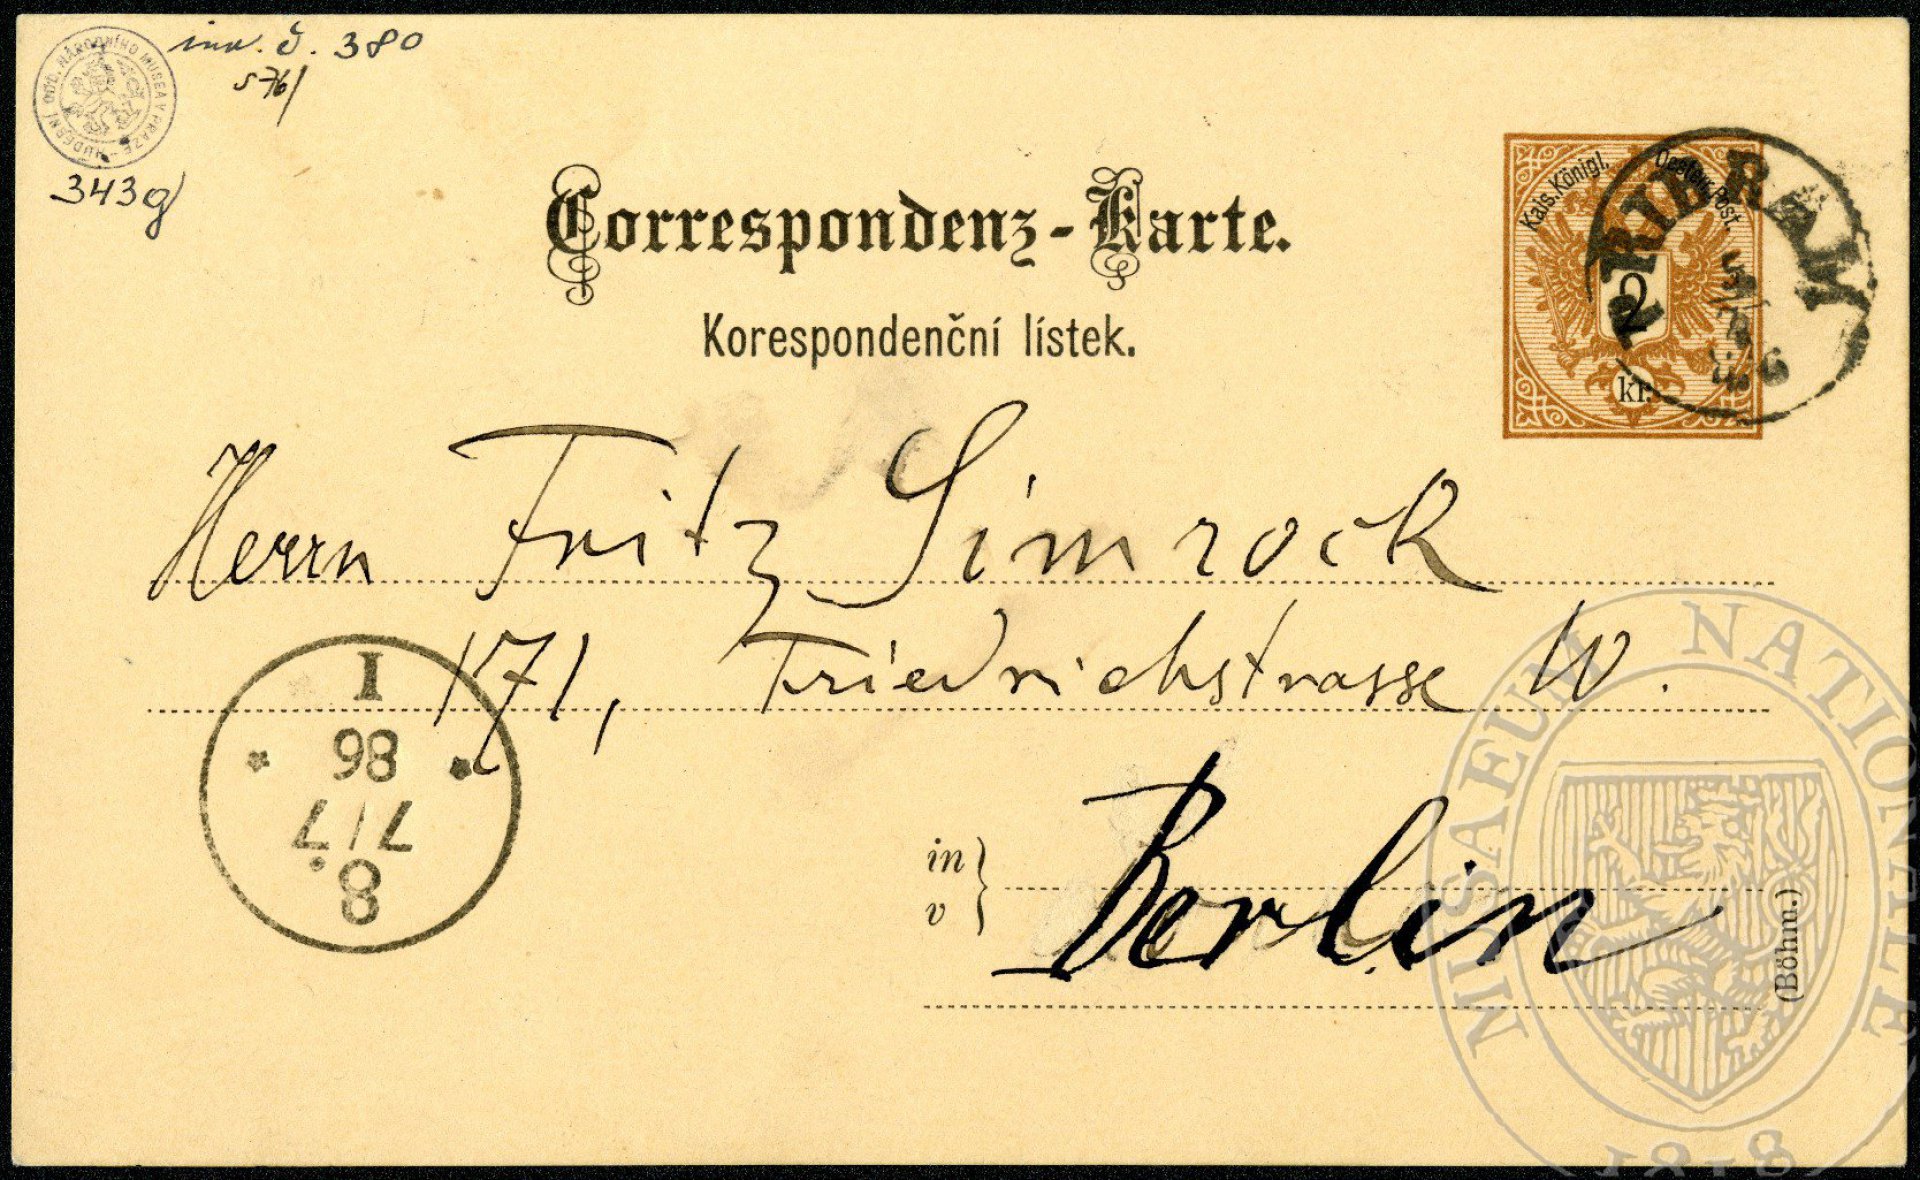 HUDEBNÍ ODD. NÁRODNÍHO MUSEA V PRAZE
inv. č. 380
343g
Correspondenz-Karte.
Korespondenční lístek.
Kais. Königl. Oesterr. Post.
2
kr.
PRIBRAM
Herrn Fritz Simrock
171, Friedrichstrasse W.
in
v
Berlin
(Böhm.)
8.
7/7
86
I
MUSAEUM NATIONALE
1818